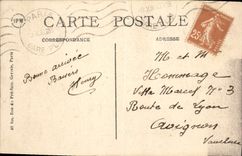 CARTE POSTALE
CORRESPONDANCE
ADRESSE
PARIS
GARE
25
Bonne arrivée
Baisers
Henry
M et M
Hommage
Villa Marcel N° 3
Route de Lyon
Avignon
Vaucluse